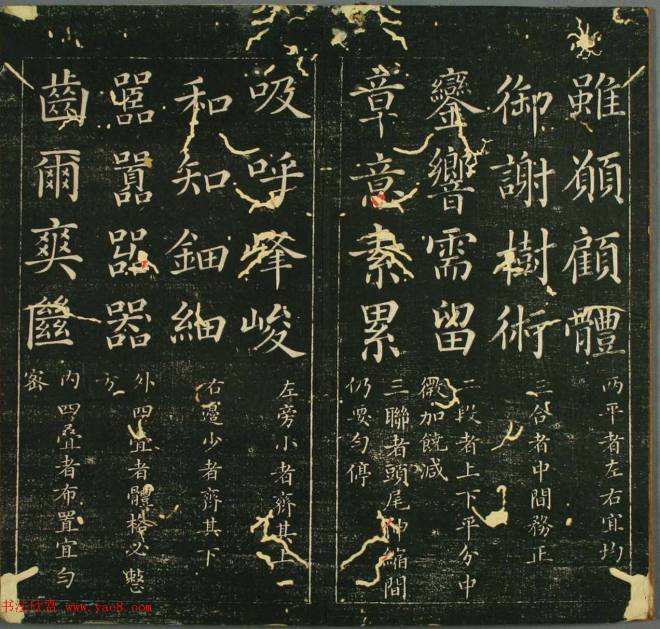 雖願顧體
两平者左右宜均
御謝樹術
三合者中間務正
鑾響需留
二段者上下平分中
微加饒減
章意素累
三聯者頭尾伸縮間
仍要勻停
吸呼峰峻
左旁小者齊其上
和知鈿細
右邊少者齊其下
嚚囂器
外四疊者體格必整
方
齒爾爽
內四疊者布置宜勻
密
书法欣赏 www.yac8.com